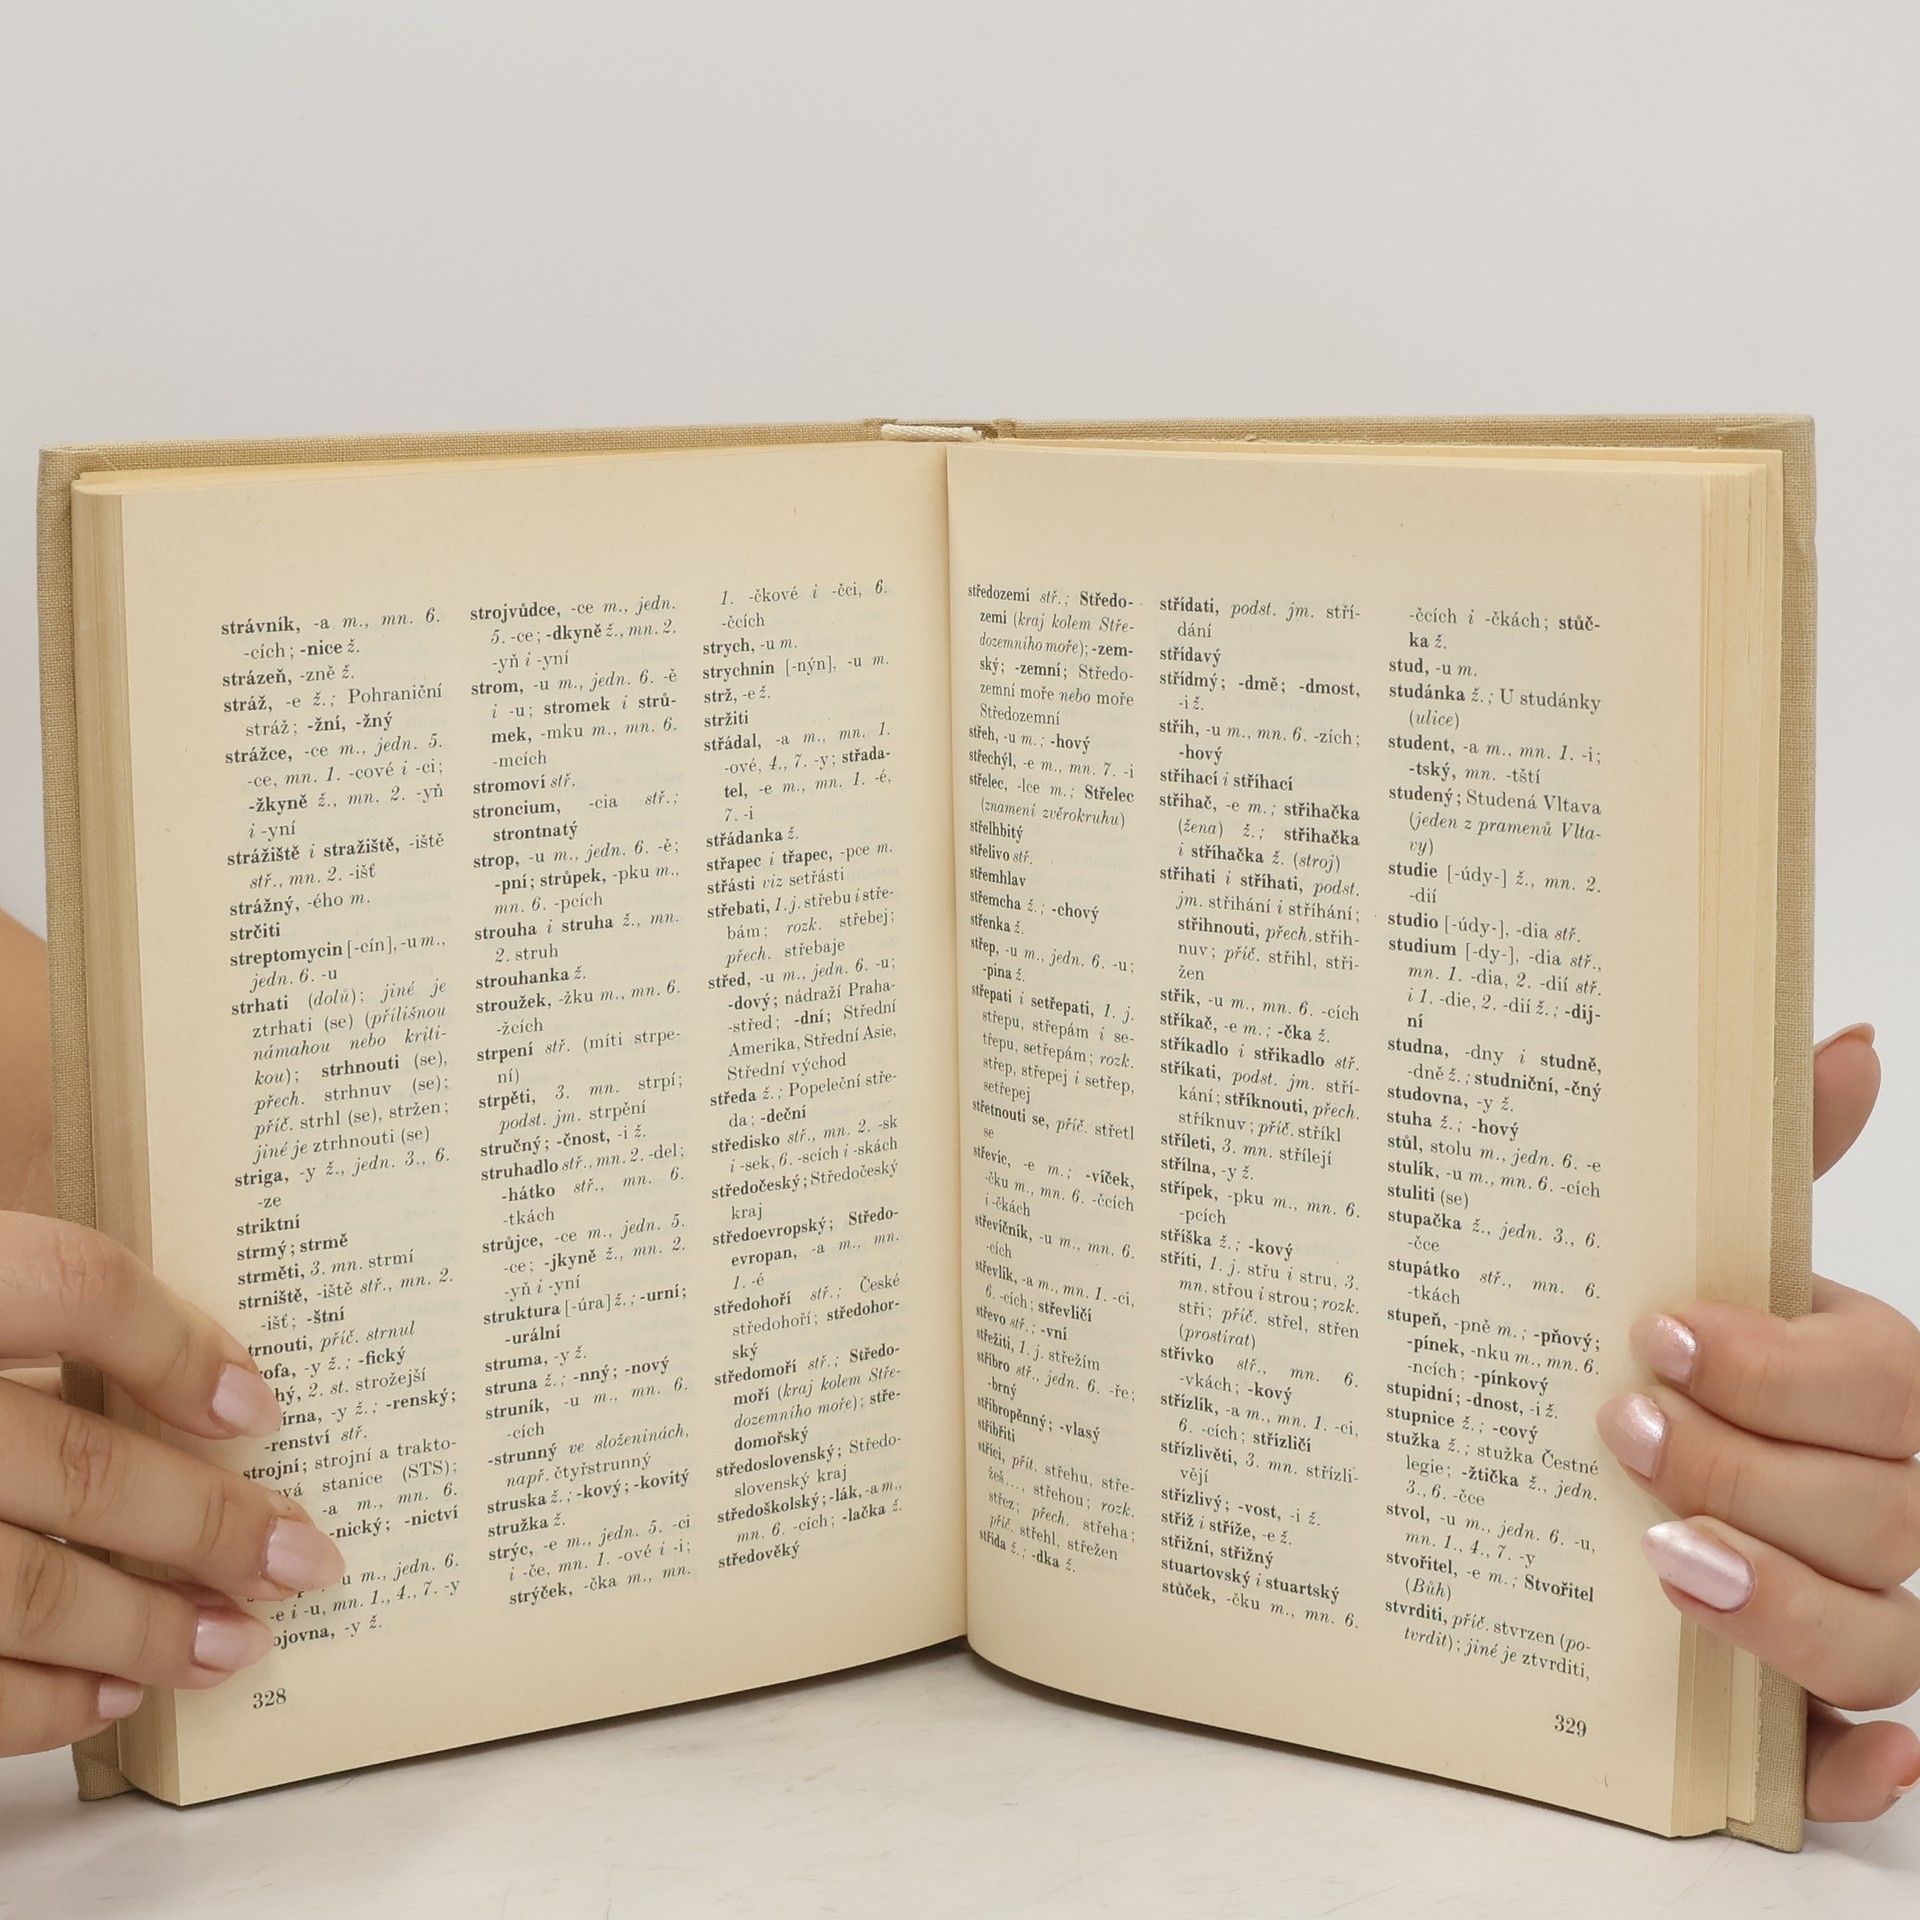 strávník, -a m., mn. 6.
-cích; -nice ž.
strázeň, -zně ž.
stráž, -e ž.; Pohraniční
stráž; -žní, -žný
strážce, -ce m., jedn. 5.
-ce, mn. 1. -cové i -ci;
-žkyně ž., mn. 2. -yň
i -yní
strážiště i stražiště, -iště
stř., mn. 2. -išť
strážný, -ého m.
strčiti
streptomycin [-cín], -u m.,
jedn. 6. -u
strhati (dolů); jiné je
ztrhati (se) (přílišnou
námahou nebo kriti-
kou); strhnouti (se),
přech. strhnuv (se);
příč. strhl (se), stržen;
jiné je ztrhnouti (se)
striga, -y ž., jedn. 3., 6.
-ze
striktní
strmý; strmě
strměti, 3. mn. strmí
strniště, -iště stř., mn. 2.
-išť; -štní
trnouti, příč. strnul
rofa, -y ž.; -fický
hý, 2. st. strožejší
írna, -y ž.; -renský;
-renství stř.
strojní; strojní a trakto-
ová stanice (STS);
-a m., mn. 6.
-nický; -nictví
u m., jedn. 6.
-e i -u, mn. 1., 4., 7. -y
ojovna, -y ž.
328
strojvůdce, -ce m., jedn.
5. -ce; -dkyně ž., mn. 2.
-yň i -yní
strom, -u m., jedn. 6. -ě
i -u; stromek i strů-
mek, -mku m., mn. 6.
-mcích
stromoví stř.
stroncium, -cia stř.;
strontnatý
strop, -u m., jedn. 6. -ě;
-pní; strůpek, -pku m.,
mn. 6. -pcích
strouha i struha ž., mn.
2. struh
strouhanka ž.
stroužek, -žku m., mn. 6.
-žcích
strpení stř. (míti strpe-
ní)
strpěti, 3. mn. strpí;
podst. jm. strpění
stručný; -čnost, -i ž.
struhadlo stř., mn. 2. -del;
-hátko stř., mn. 6.
-tkách
strůjce, -ce m., jedn. 5.
-ce; -jkyně ž., mn. 2.
-yň i -yní
struktura [-úra] ž.; -urní;
-urální
struma, -y ž.
struna ž.; -nný; -nový
struník, -u m., mn. 6.
-cích
-strunný ve složeninách,
např. čtyřstrunný
struska ž.; -kový; -kovitý
stružka ž.
strýc, -e m., jedn. 5. -ci
i -če, mn. 1. -ové i -i;
strýček, -čka m., mn.
1. -čkové i -čci, 6.
-čcích
strych, -u m.
strychnin [-nýn], -u m.
strž, -e ž.
stržiti
střádal, -a m., mn. 1.
-ové, 4., 7. -y; střada-
tel, -e m., mn. 1. -é,
7. -i
střádanka ž.
střapec i třapec, -pce m.
střásti viz setřásti
střebati, 1. j. střebu i stře-
bám; rozk. střebej;
přech. střebaje
střed, -u m., jedn. 6. -u;
-dový; nádraží Praha-
-střed; -dní; Střední
Amerika, Střední Asie,
Střední východ
středa ž.; Popeleční stře-
da; -deční
středisko stř., mn. 2. -sk
i -sek, 6. -scích i -skách
středočeský; Středočeský
kraj
středoevropský; Středo-
evropan, -a m., mn.
1. -é
středohoří stř.; České
středohoří; středohor-
ský
středomoří stř.; Středo-
moří (kraj kolem Stře-
dozemního moře); stře-
domořský
středoslovenský; Středo-
slovenský kraj
středoškolský; -lák, -a m.,
mn. 6. -cích; -lačka ž.
středověký
středozemí stř.; Středo-
zemí (kraj kolem Stře-
dozemního moře); -zem-
ský; -zemní; Středo-
zemní moře nebo moře
Středozemní
střeh, -u m.; -hový
střechýl, -e m., mn. 7. -i
střelec, -lce m.; Střelec
(znamení zvěrokruhu)
střelhbitý
střelivo stř.
střemhlav
střemcha ž.; -chový
střenka ž.
střep, -u m., jedn. 6. -u;
-pina ž.
střepati i setřepati, 1. j.
střepu, střepám i se-
třepu, setřepám; rozk.
střep, střepej i setřep,
setřepej
střetnouti se, příč. střetl
se
střevíc, -e m.; -víček,
-čku m., mn. 6. -čcích
i -čkách
střevíčník, -u m., mn. 6.
-cích
střevlík, -a m., mn. 1. -ci,
6. -cích; střevličí
střevo stř.; -vní
střežiti, 1. j. střežím
stříbro stř., jedn. 6. -ře;
-brný
stříbropěnný; -vlasý
stříbřiti
stříci, přít. střehu, stře-
žeš..., střehou; rozk.
střez; přech. střeha;
příč. střehl, střežen
střída ž.; -dka ž.
střídati, podst. jm. stří-
dání
střídavý
střídmý; -dmě; -dmost,
-i ž.
střih, -u m., mn. 6. -zích;
-hový
střihací i stříhací
střihač, -e m.; střihačka
(žena) ž.; střihačka
i stříhačka ž. (stroj)
střihati i stříhati, podst.
jm. střihání i stříhání;
střihnouti, přech. střih-
nuv; příč. střihl, stři-
žen
střik, -u m., mn. 6. -cích
stříkač, -e m.; -čka ž.
stříkadlo i střikadlo stř.
stříkati, podst. jm. stří-
kání; stříknouti, přech.
stříknuv; příč. stříkl
stříleti, 3. mn. střílejí
střílna, -y ž.
střípek, -pku m., mn. 6.
-pcích
stříška ž.; -kový
stříti, 1. j. střu i stru, 3.
mn. střou i strou; rozk.
stři; příč. střel, střen
(prostírat)
střívko stř., mn. 6.
-vkách; -kový
střízlík, -a m., mn. 1. -ci,
6. -cích; střízličí
střízlivěti, 3. mn. střízli-
vějí
střízlivý; -vost, -i ž.
stříž i stříže, -e ž.
střižní, střižný
stuartovský i stuartský
stůček, -čku m., mn. 6.
-čcích i -čkách; stůč-
ka ž.
stud, -u m.
studánka ž.; U studánky
(ulice)
student, -a m., mn. 1. -i;
-tský, mn. -tští
studený; Studená Vltava
(jeden z pramenů Vlta-
vy)
studie [-údy-] ž., mn. 2.
-dií
studio [-údy-], -dia stř.
studium [-dy-], -dia stř.,
mn. 1. -dia, 2. -dií stř.
i 1. -die, 2. -dií ž.; -dij-
ní
studna, -dny i studně,
-dně ž.; studniční, -čný
studovna, -y ž.
stuha ž.; -hový
stůl, stolu m., jedn. 6. -e
stulík, -u m., mn. 6. -cích
stuliti (se)
stupačka ž., jedn. 3., 6.
-čce
stupátko stř., mn. 6.
-tkách
stupeň, -pně m.; -pňový;
-pínek, -nku m., mn. 6.
-ncích; -pínkový
stupidní; -dnost, -i ž.
stupnice ž.; -cový
stužka ž.; stužka Čestné
legie; -žtička ž., jedn.
3., 6. -čce
stvol, -u m., jedn. 6. -u,
mn. 1., 4., 7. -y
stvořitel, -e m.; Stvořitel
(Bůh)
stvrditi, příč. stvrzen (po-
tvrdit); jiné je ztvrditi,
329